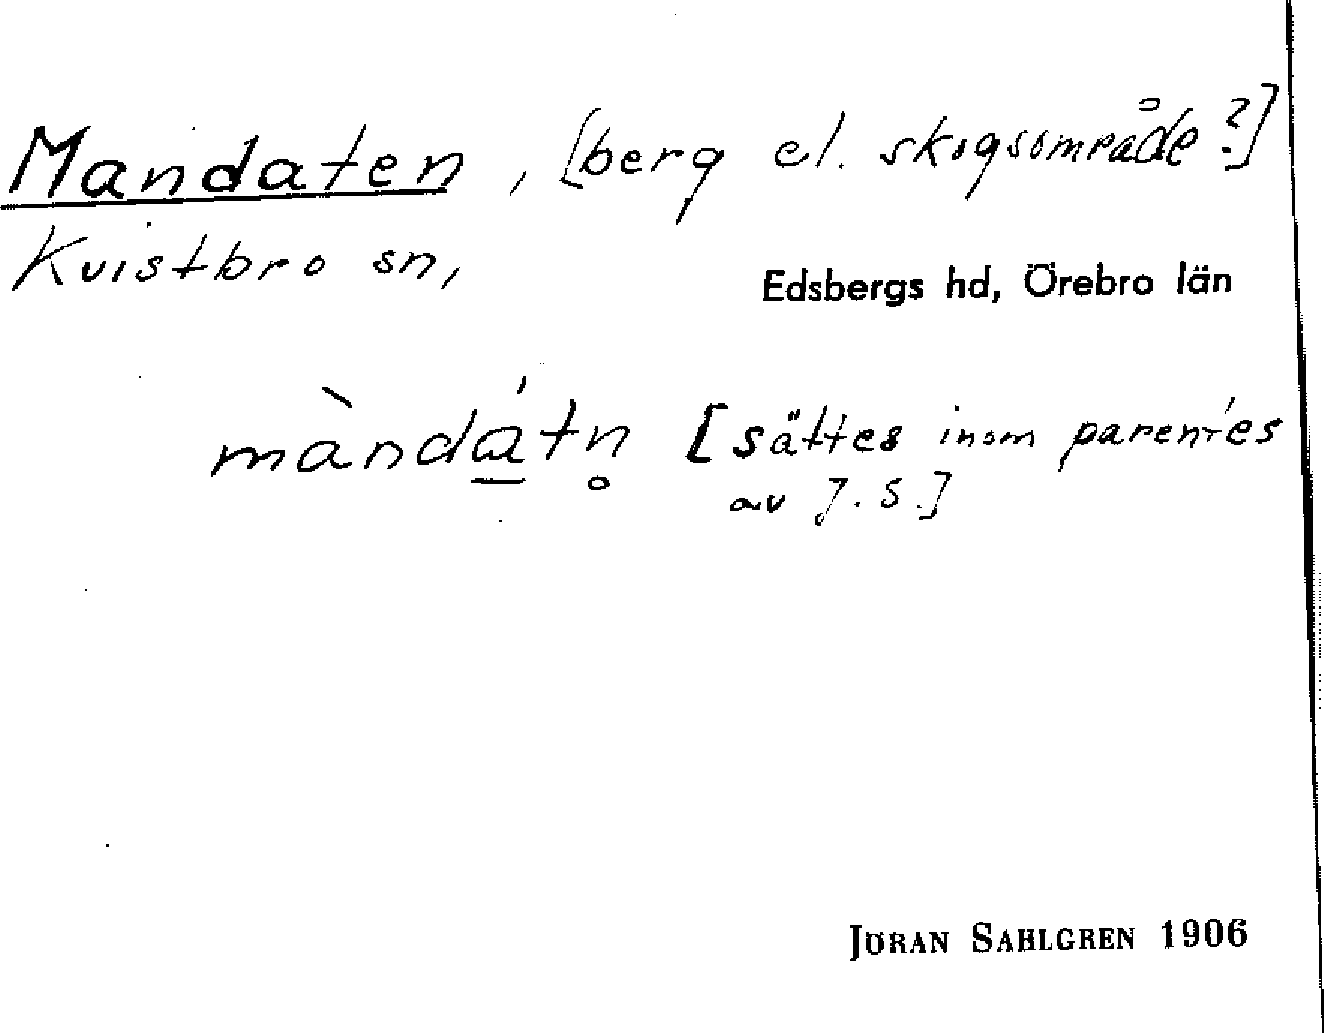 Mandaten, [berg el. skogsområde?]
Kvistbro sn,
Edsbergs hd, Örebro län
màndá̱tn̥ [sättes inom parentes
av J. S.]
JÖRAN SAHLGREN 1906